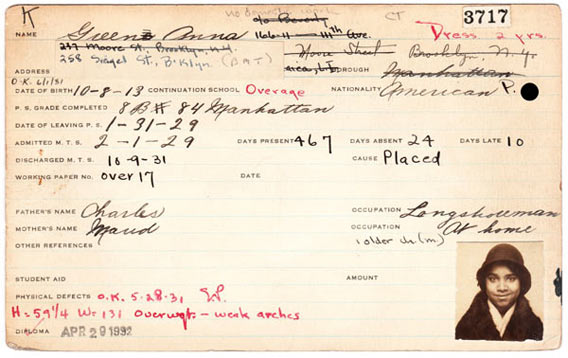 K no domestic work CT 3717
NAME Greene Anna c/o Beverly Dress 2 yrs.
166-11-111th Ave.
237 Moore St., Brooklyn, N.Y. Moore Street Brooklyn, N.Y.
258 Siegel St., B'klyn (BMT)
ADDRESS BOROUGH Manhattan
O.K. 6/1/31
DATE OF BIRTH 10-8-13 CONTINUATION SCHOOL Overage NATIONALITY American P.
P. S. GRADE COMPLETED 8B # 84 Manhattan
DATE OF LEAVING P. S. 1-31-29
ADMITTED M. T. S. 2-1-29 DAYS PRESENT 467 DAYS ABSENT 24 DAYS LATE 10
DISCHARGED M. T. S. 10-9-31 CAUSE Placed
WORKING PAPER No. over 17 DATE
FATHER'S NAME Charles OCCUPATION Longshoreman
MOTHER'S NAME Maud OCCUPATION At home
OTHER REFERENCES 1 older (m)
STUDENT AID AMOUNT
PHYSICAL DEFECTS O.K. 5-28-31
H= 59 1/4 W= 131 Overwgt. - weak arches
DIPLOMA APR 29 1932